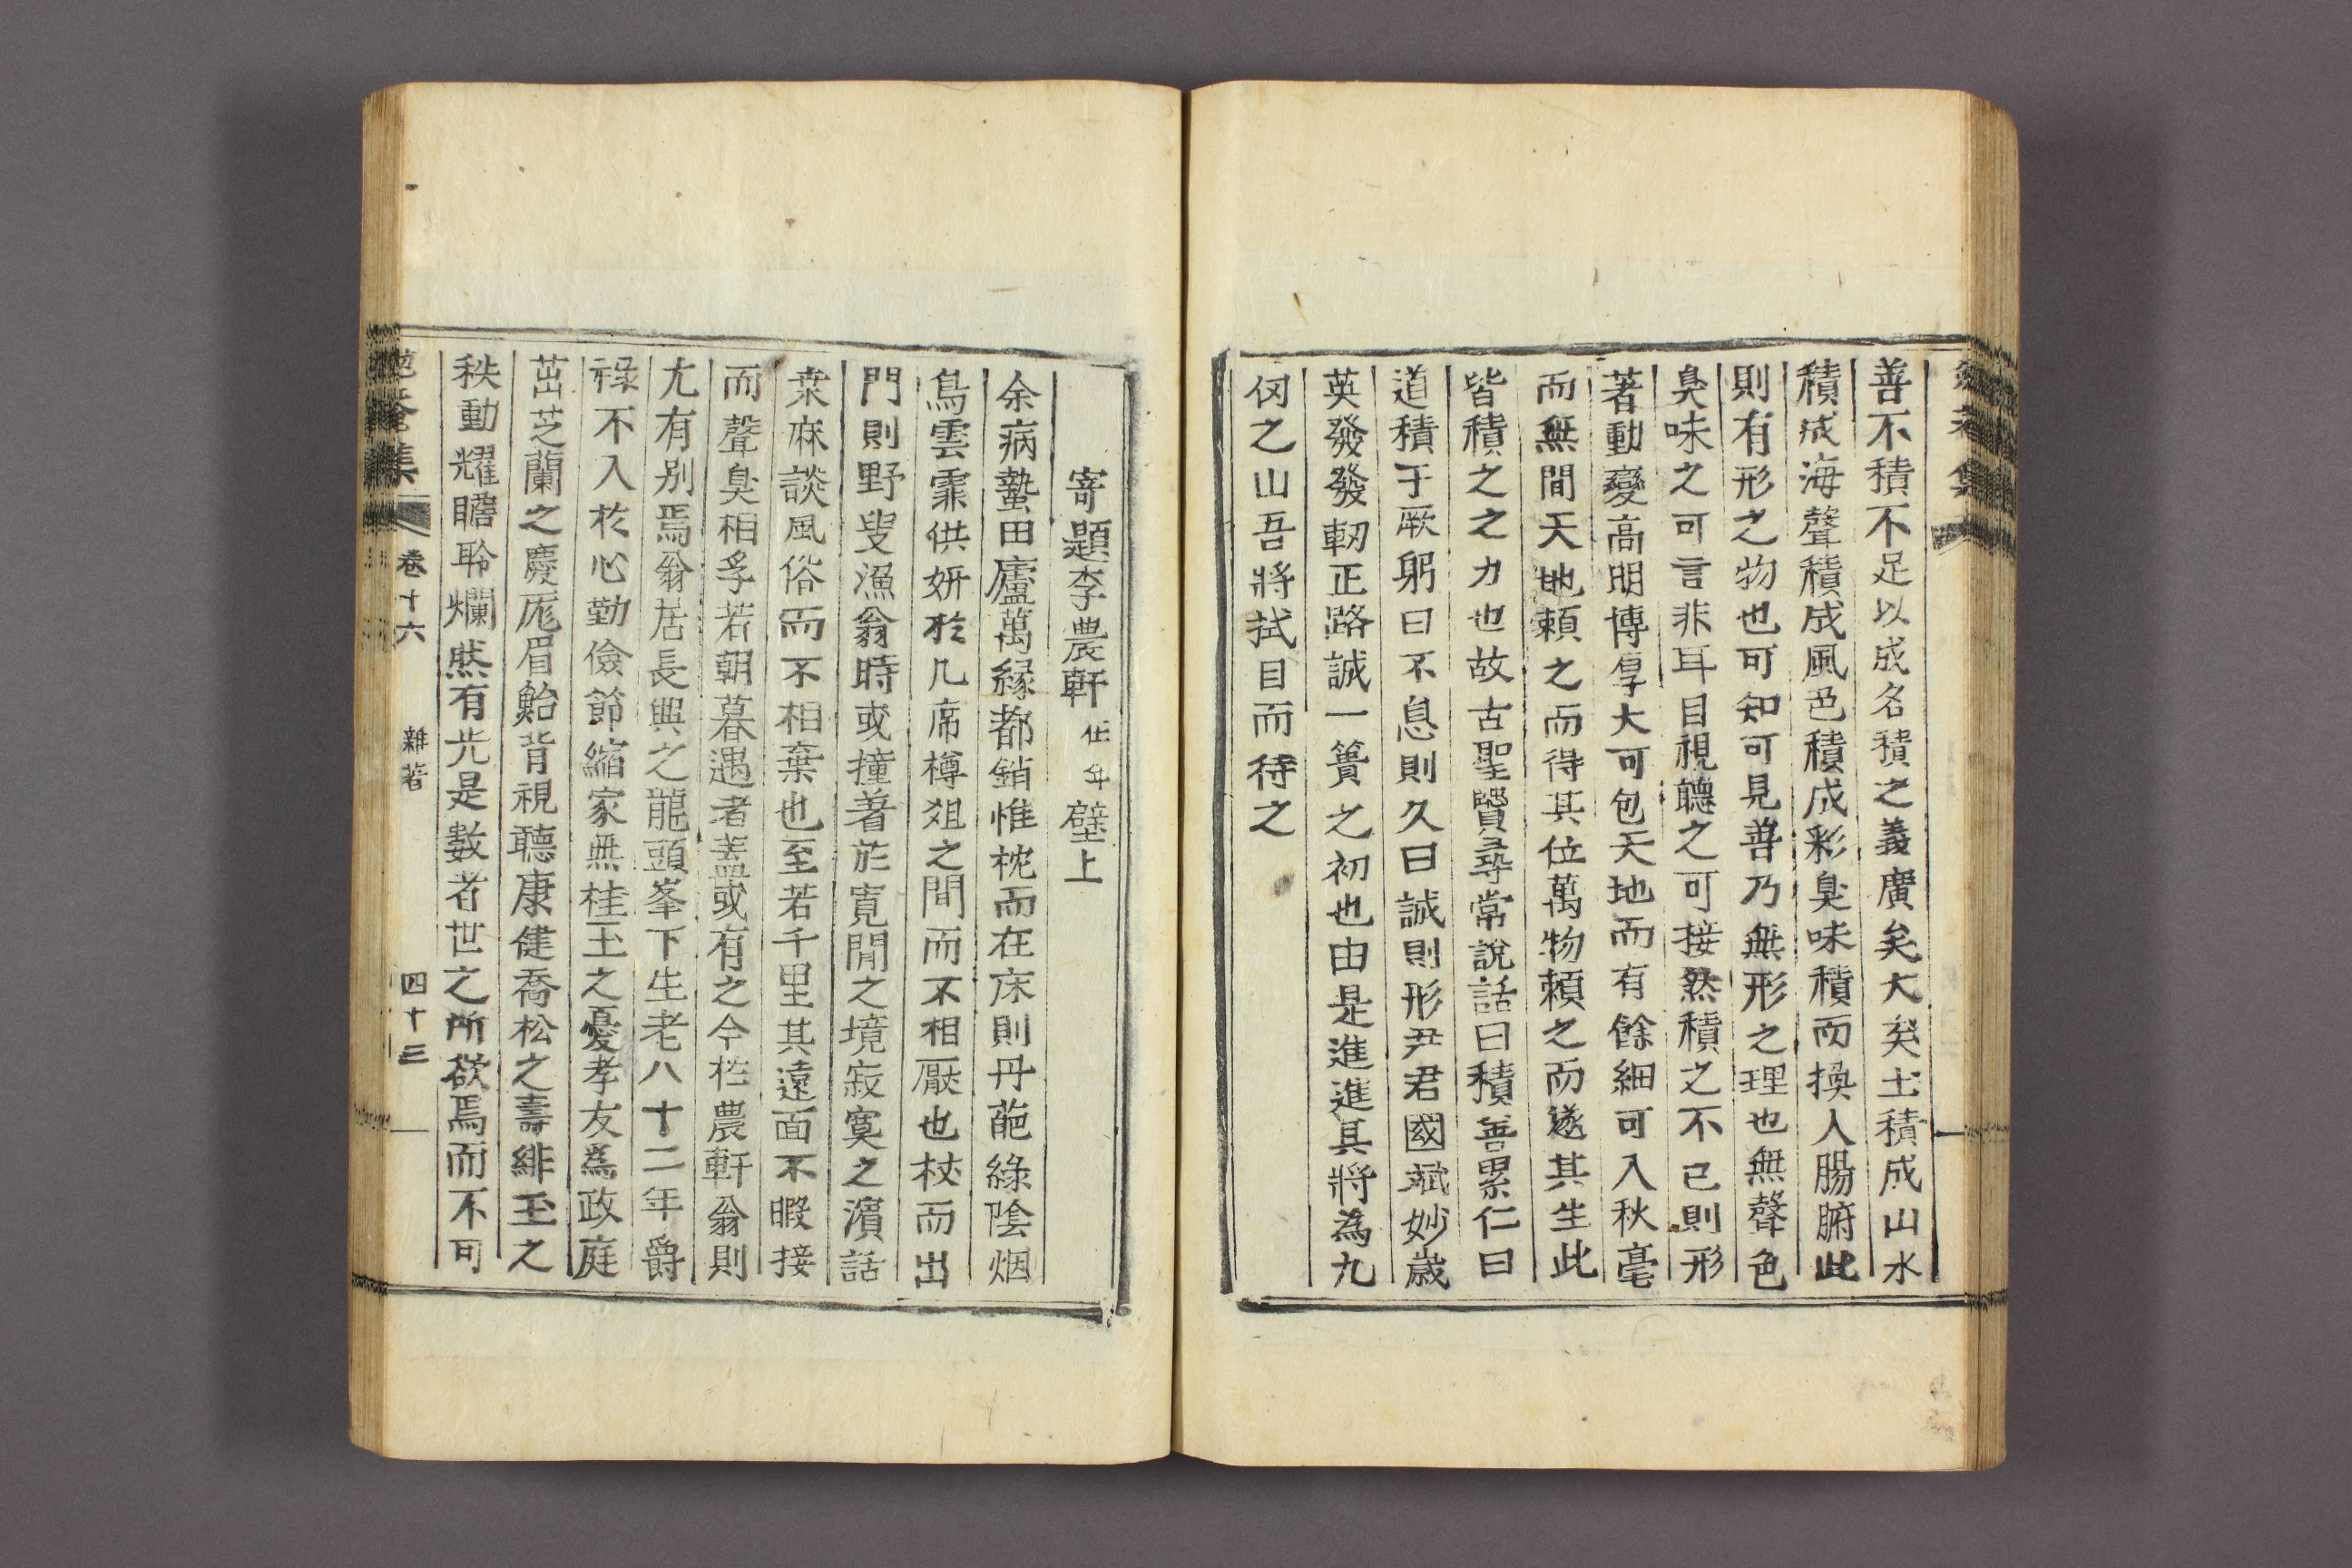 善不積不足以成名積之義廣矣大矣土積成山水
積成海聲積成風色積成彩臭味積而換人腸腑此
則有形之物也可知可見善乃無形之理也無聲色
臭味之可言非耳目視聽之可接然積之不已則形
著動變高明博厚大可包天地而有餘細可入秋毫
而無間天地賴之而得其位萬物賴之而遂其生此
皆積之之力也故古聖賢尋常說話曰積善累仁曰
道積于厥躬曰不息則久曰誠則形尹君國斌妙歲
英發發軔正路誠一簣之初也由是進進其將為九
仞之山吾將拭目而待之
寄題李農軒 仕年 壁上
余病蟄田廬萬緣都銷惟枕而在床則丹葩綠陰烟
鳥雲霏供妍於几席樽俎之間而不相厭也杖而出
門則野叟漁翁時或撞著於寬閒之境寂寞之濱話
桒麻談風俗而不相棄也至若千里其遠面不暇接
而聲臭相孚若朝暮遇者蓋或有之今於農軒翁則
尤有別焉翁居長興之龍頭峯下生老八十二年爵
祿不入於心勤儉節縮家無桂玉之憂孝友爲政庭
茁芝蘭之慶厖眉鮐背視聽康健喬松之壽緋玉之
秩動耀瞻聆爛然有光是數者世之所欲焉而不可
集 卷十六 雜著 四十三